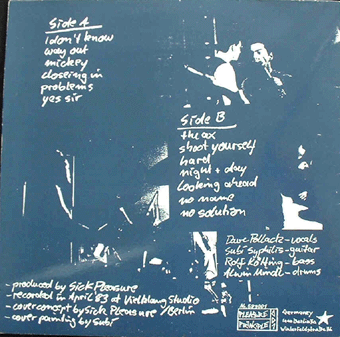 Side A
I don't know
way out
mickey
closeing in
problems
yes sir
Side B
the ax
shoot yourself
hard
night + day
looking ahead
no name
no solution
Dave Pollack - vocals
Subi Syphilis - guitar
Rolf Kötting - bass
Alwin Mindl - drums
- produced by Sick Pleasure
- recorded in April '83 at Vielklang Studio
- cover concept by Sick Pleasure / Berlin
- cover painting by Subi
PLEASURE
PRINCIPLE
Germoney
1000 Berlin